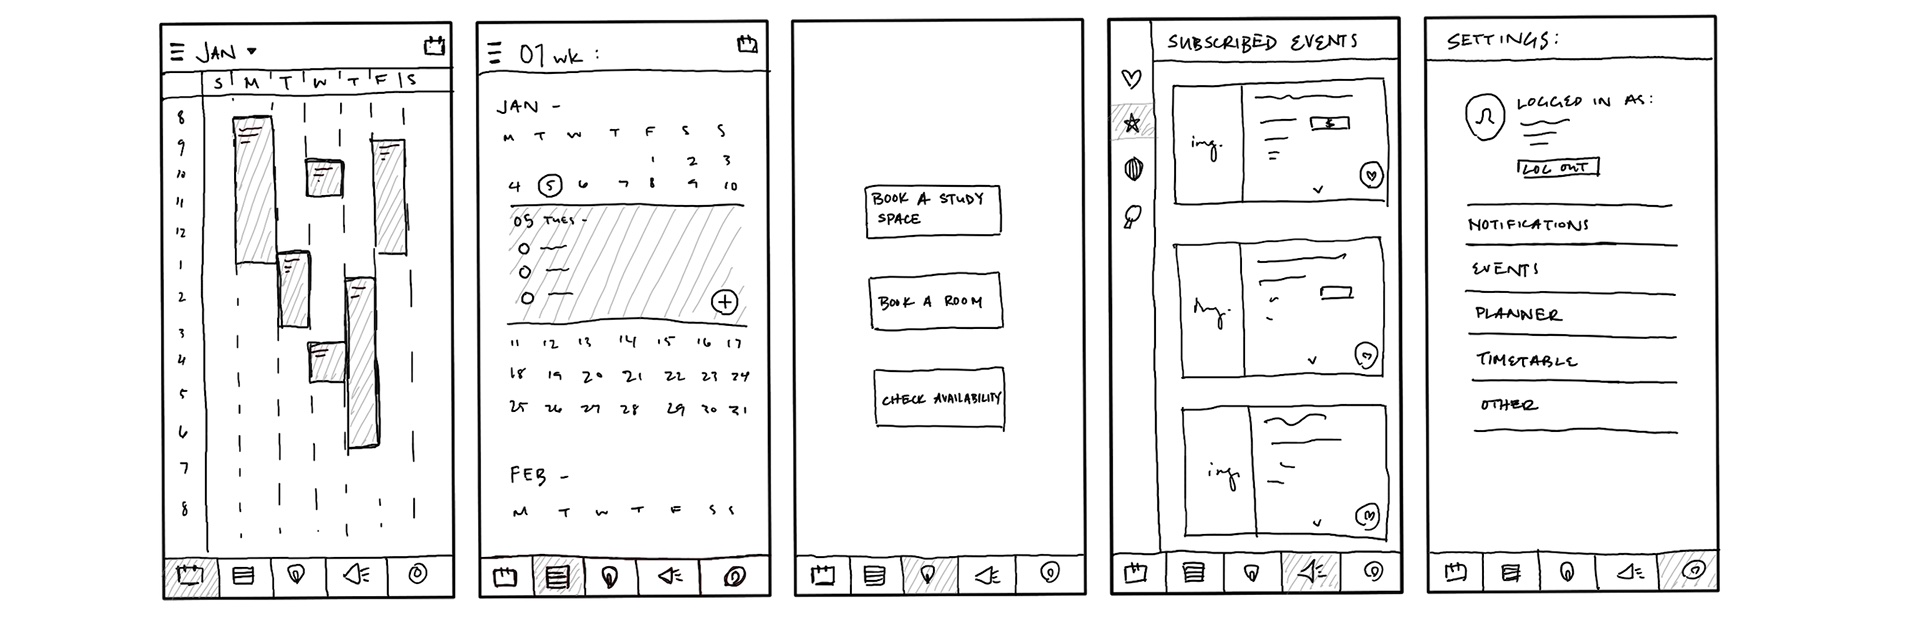 JAN
S M T W T F S
8
9
10
11
12
1
2
3
4
5
6
7
8
01 wk :
JAN -
M T W T F S S
1 2 3
4 5 6 7 8 9 10
05 TUES -
11 12 13 14 15 16 17
18 19 20 21 22 23 24
25 26 27 28 29 30 31
FEB -
M T W T F S S
BOOK A STUDY
SPACE
BOOK A ROOM
CHECK AVAILABILITY
SUBSCRIBED EVENTS
img.
$
img.
img.
SETTINGS:
LOGGED IN AS:
LOG OUT
NOTIFICATIONS
EVENTS
PLANNER
TIMETABLE
OTHER